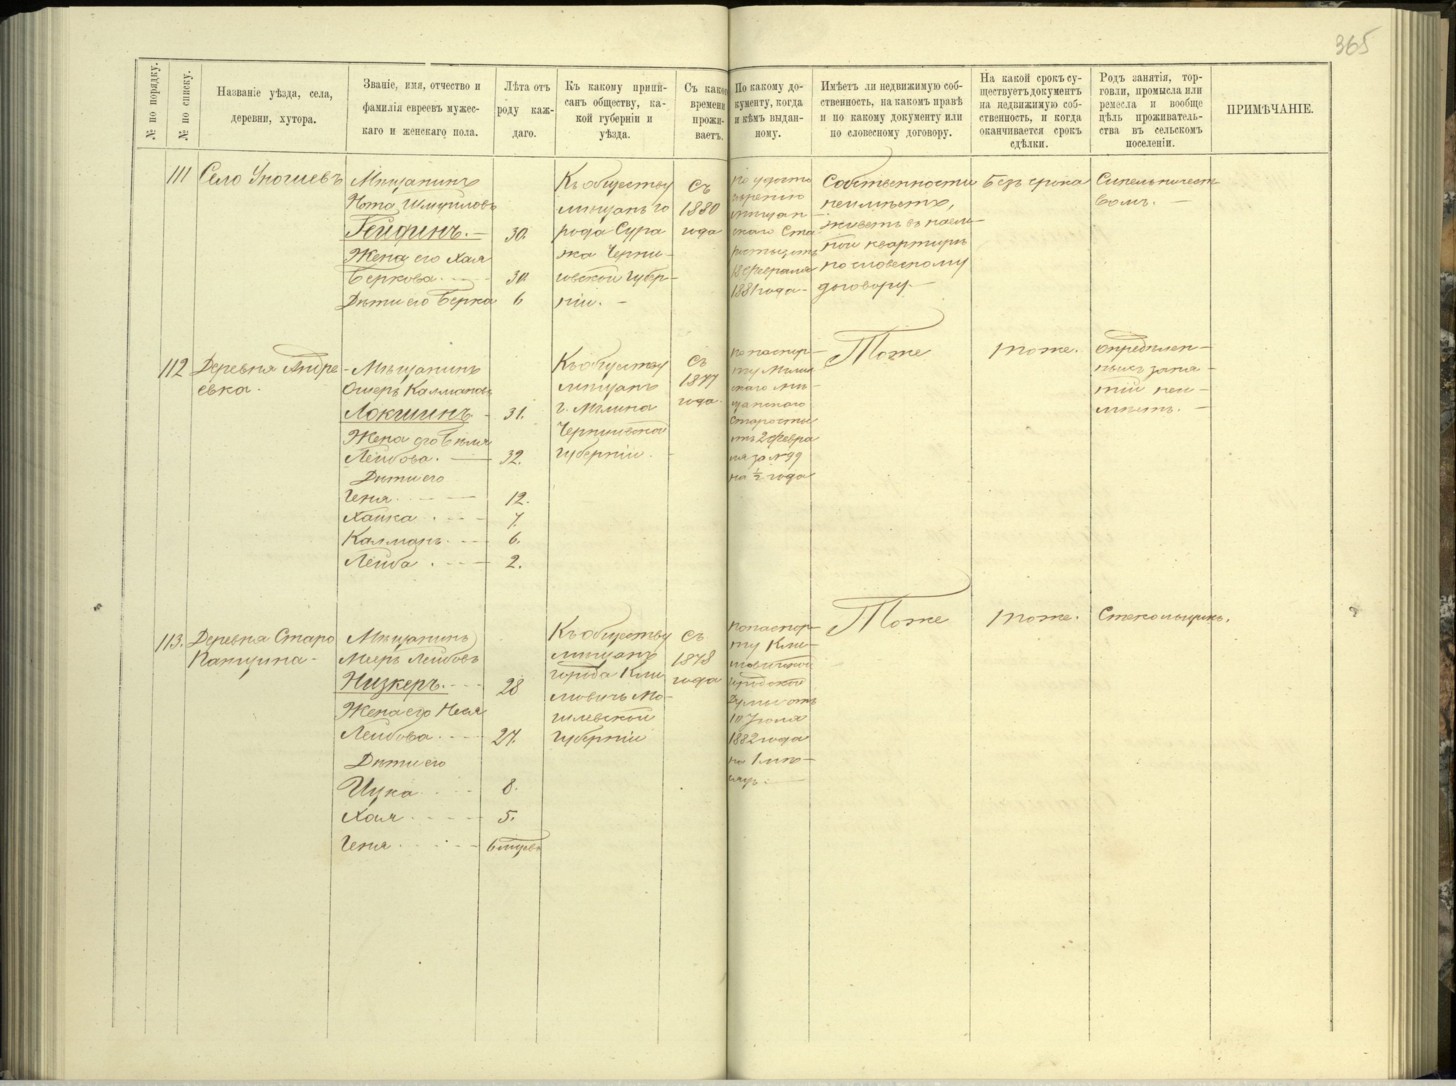 365
№ по порядку.
№ по списку.
Названіе уѣзда, села,
деревни, хутора.
Званіе, имя, отчество и
фамилія евреевъ мужес-
каго и женскаго пола.
Лѣта отъ
роду каж-
даго.
Къ какому припи-
санъ обществу, ка-
кой губерніи и
уѣзда.
Съ какого
времени
прожи-
ваетъ.
По какому до-
кументу, когда
и кѣмъ выдан-
ному.
Имѣетъ ли недвижимую соб-
ственность, на какомъ правѣ
и по какому документу или
по словесному договору.
На какой срокъ су-
ществуетъ документъ
на недвижимую соб-
ственность, и когда
оканчивается срокъ
сдѣлки.
Родъ занятія, тор-
говли, промысла или
ремесла и вообще
цѣль проживатель-
ства въ сельскомъ
поселеніи.
ПРИМѢЧАНІЕ.
111
Село
Мѣщанинъ
Нота Шмуйловъ
Гейдинъ. 30.
Жена его Хая
Беркова. 30.
Дѣти его Берка 6
Къ обществу
мѣщанъ го
рода Сура
жа Черни-
говской Губер-
ніи.
Съ
1880
года
По удосто
вѣренію
мѣщан-
скаго Ста
росты отъ
18 февраля
1881 года
Собственности
неимѣетъ,
живетъ въ наем-
ной квартирѣ
по словесному
договору.
Безъ срока
112
Деревня Андре
евка.
Мѣщанинъ
Ошеръ Калмановъ
Локшинъ 31.
Жена его
Лейбова. 32.
Дѣти его
Геня 12.
Хайка 7.
Калманъ 6.
Лейба 2.
Къ обществу
мѣщанъ
г. Мглина
Черниговской
губерніи.
Съ
1877
года.
по паспор-
ту Мглин
скаго мѣ-
щанскаго
Старосты
отъ 2 февра
ля за № 99
на ½ года
Тоже
тоже.
опредѣлен-
ныхъ заня-
тій неи-
мѣетъ.
113.
Деревня Старо
Канщина
Мѣщанинъ
Мееръ Лейбовъ
Низкеръ. 28
Жена его Неся
Лейбова 27.
Дѣти его
Ицка 8.
Хая 5.
Геня
Къ обществу
мѣщанъ
города Кли
мовичъ Мо-
гилевской
губерніи
Съ
1878
года
по паспор-
ту Кли-
мовичской
городской
Думы отъ
10 Іюля
1882 года
на 1 мѣ-
сяцъ.
Тоже
тоже.
Стекольщикъ.